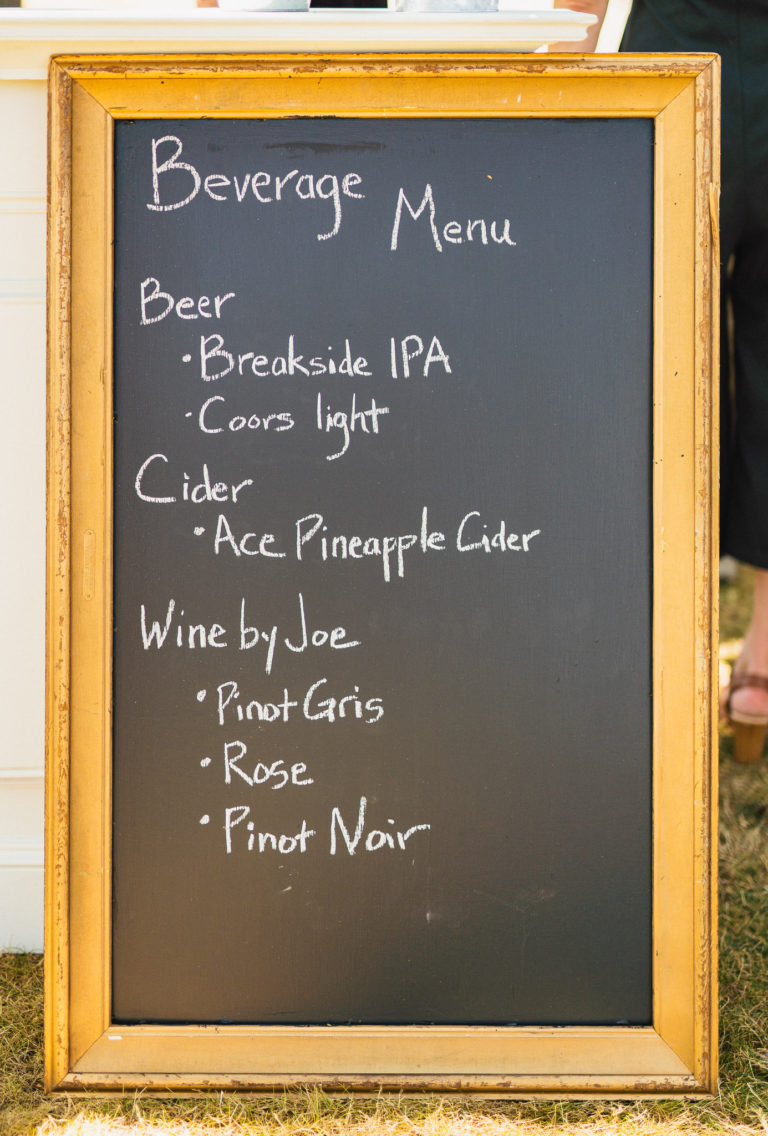 Beverage Menu
Beer
·Breakside IPA
·Coors light
Cider
·Ace Pineapple Cider
Wine by Joe
·Pinot Gris
·Rose
·Pinot Noir